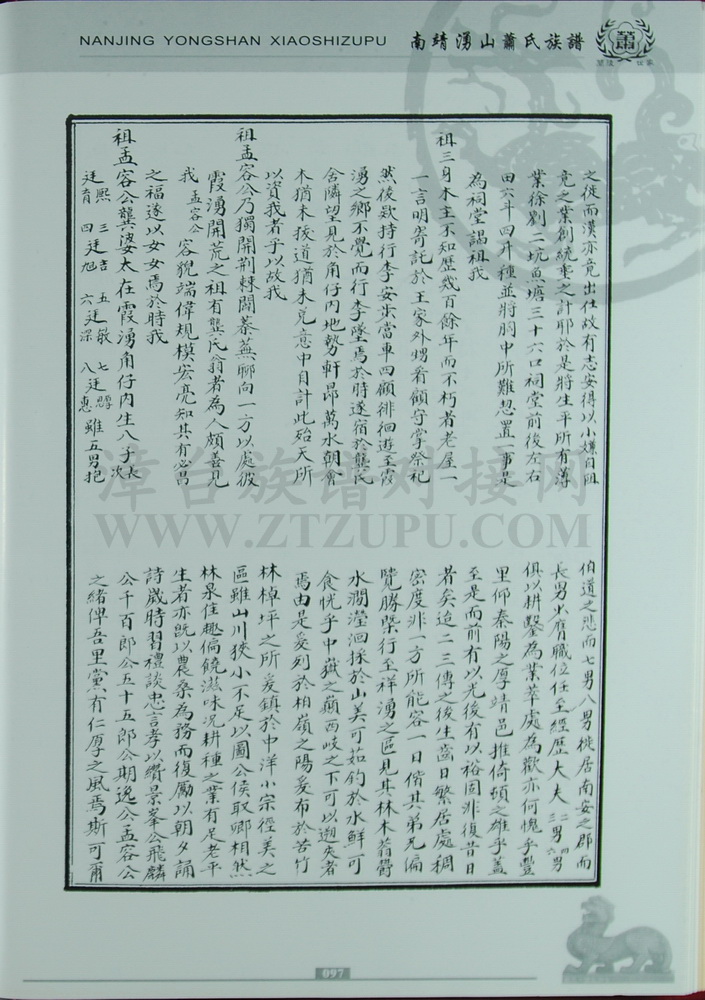 NANJING YONGSHAN XIAOSHIZUPU 南靖湧山蕭氏族譜
蕭
之徙而漢亦竟出仕故有志安得以小嫌自阻
竟之業創統垂之計耶於是將生平所有薄
業徐劉二坑魚塘三十六口祠堂前後左右
田六斗四升種並將胸中所難恝置一事是
為祠堂謁祖我
祖三身木主不知歷幾百餘年而不朽者老屋一
一言明寄託於王家外甥看顧守掌祭祀
然後欵持行李安步當車四顧徘徊遊至霞
湧之鄉不覺而行李墜焉於時遂宿於龔氏
舍隣望見於角仔內地勢軒昂萬水朝會
木猶未拔道猶未兌意中自計此殆天所
以資我者乎以故我
祖孟容公乃獨開荆棘闢蓁蕪聊向一方以處彼
霞湧開荒之祖有龔氏翁者為人頗善見
我孟容公容貌端偉規模宏亮知其有必昌
之福遂以女女焉於時我
祖孟容公龔婆太在霞湧角仔內生八子長
廷熙三廷吉五廷敏七廷 次
廷育四廷旭六廷深八廷惠雖五男抱
伯道之悲而七男八男徙居南安之郡而
長男出膺職位任至經歷大夫二男四男六男
俱以耕鑿為業萃處為歡亦何愧乎豐
里仰秦陽之厚靖邑推倚頓之雄乎蓋
至是而前有以光後有以裕固非復昔日
者矣迨二三傳之後生齒日繁居處稠
密度非一方所能容一日偕其弟兄偏
覽勝槩行至祥湧之區見其林木蓊欝
水澗瀅洄採於山美可茹釣於水鮮可
食恍乎中嶽之巔西岐之下可以遡 者
焉由是爰列於柏嶺之陽爰布於苦竹
林棹坪之所爰鎮於中洋小宗徑美之
區雖山川狹小不足以圖公侯取卿相然
林泉佳趣偏饒滋味况耕種之業有足老平
生者亦旣以農桑為務而復勵以朝夕誦
詩歲時習禮談忠言孝以纘景峯公飛麟
公千百郎公五十五郎公期逸公孟容公
之緒俾吾里黨有仁厚之風焉斯可爾
漳台族谱对接网
WWW.ZTZUPU.COM
097